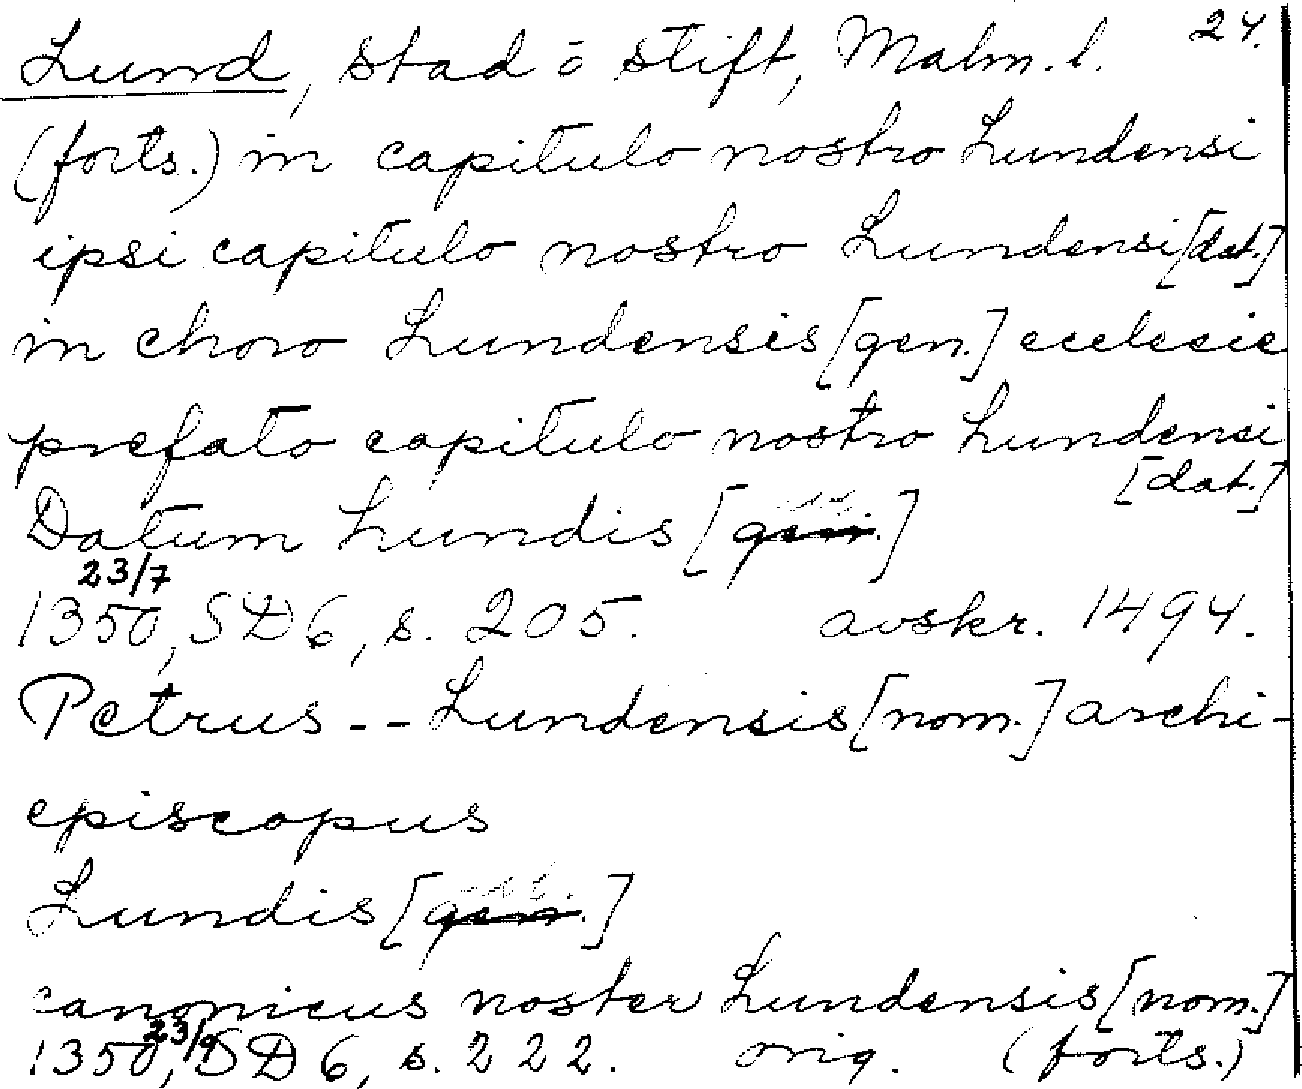 24.
Lund, stad o stift, Malm. l.
(forts.) in capitulo nostro Lundensi
ipsi capitulo nostro Lundensi [dat.]
in choro Lundensis [gen.] ecclesie
prefato capitulo nostro Lundensi
[dat.]
Datum Lundis [gen.]
23/7
1350, SD 6, s. 205. avskr. 1494.
Petrus -- Lundensis [nom.] archi-
episcopus
Lundis [gen.]
canonicus noster Lundensis [nom.]
23/9
1350, SD 6, s. 222. orig. (forts.)